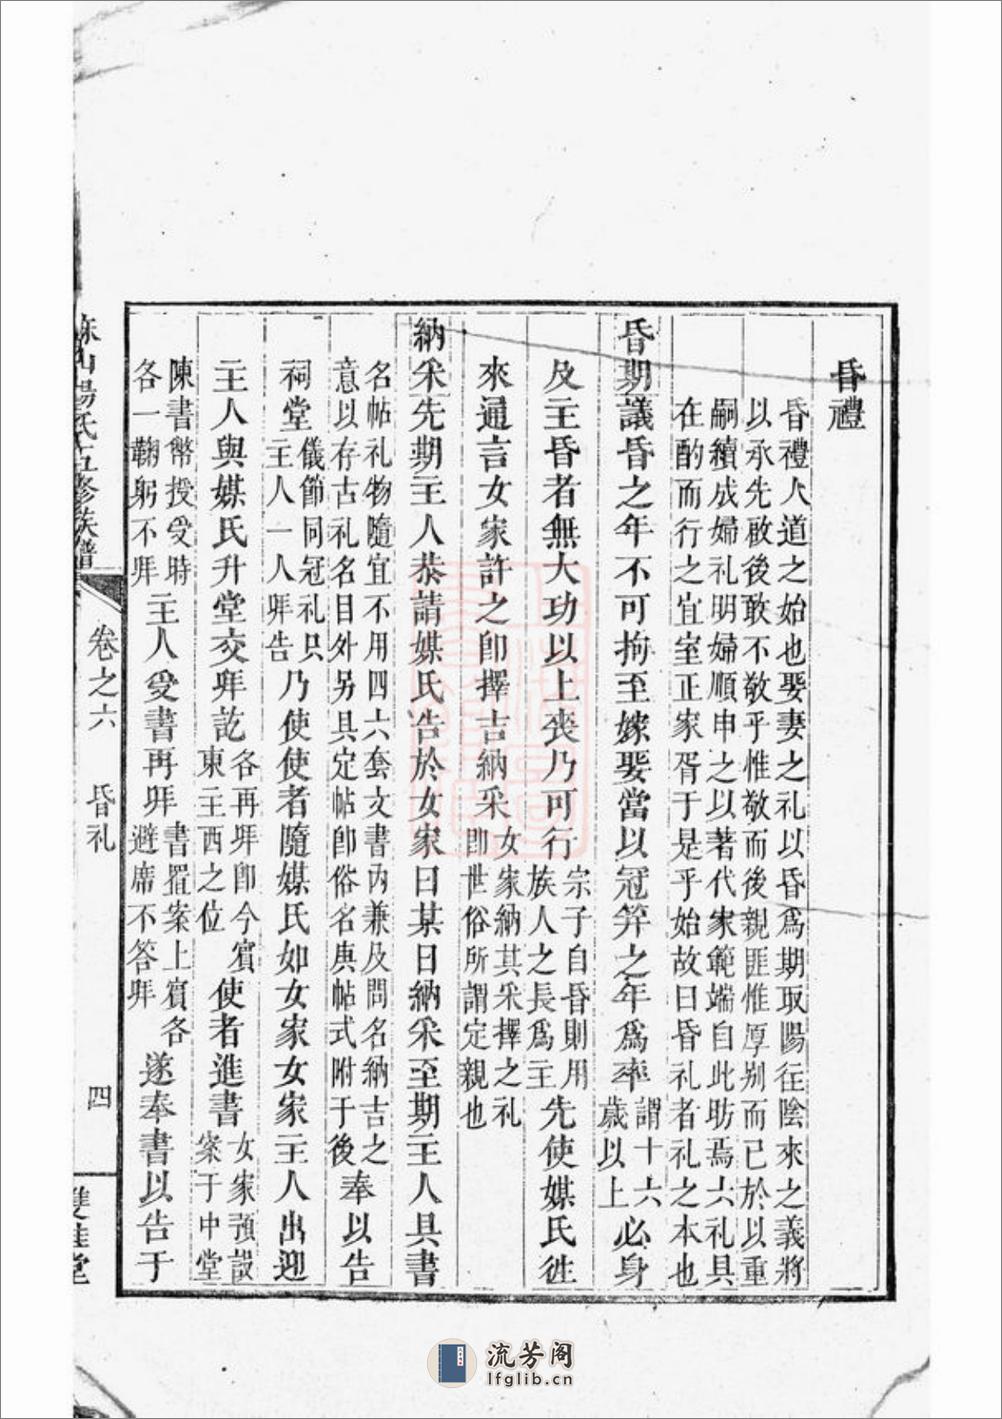 昏禮
昏禮人道之始也娶妻之礼以昏爲期取陽往陰來之義將
以承先啟後敢不敬乎惟敬而後親匪惟厚别而已於以重
嗣續成婦礼明婦順申之以著代家範端自此昉焉六礼具
在酌而行之宜室正家胥于是乎始故曰昏礼者礼之本也
昏期議昏之年不可拘至嫁娶當以冠笄之年爲率謂十六歲以上必身
及主昏者無大功以上喪乃可行宗子自昏則用族人之長爲主先使媒氏徃
來通言女家許之卽擇吉納采女家納其采擇之礼卽世俗所謂定親也
納采先期主人恭請媒氏告於女家曰某日納采至期主人具書
名帖礼物隨宜不用四六套文書內兼及問名納吉之意以存古礼名目外另具定帖卽俗名庚帖式附于後奉以告
祠堂儀節同冠礼只主人一人拜告乃使使者隨媒氏如女家女家主人出迎
主人與媒氏升堂交拜訖各再拜卽今賓東主西之位使者進書女家預設案于中堂
陳書幣授受時各一鞠躬不拜主人受書再拜書置案上賓各避席不答拜遂奉書以告于
山楊氏五修族譜
卷之六
昏礼
四
雙桂堂
流芳阁
lfglib.cn